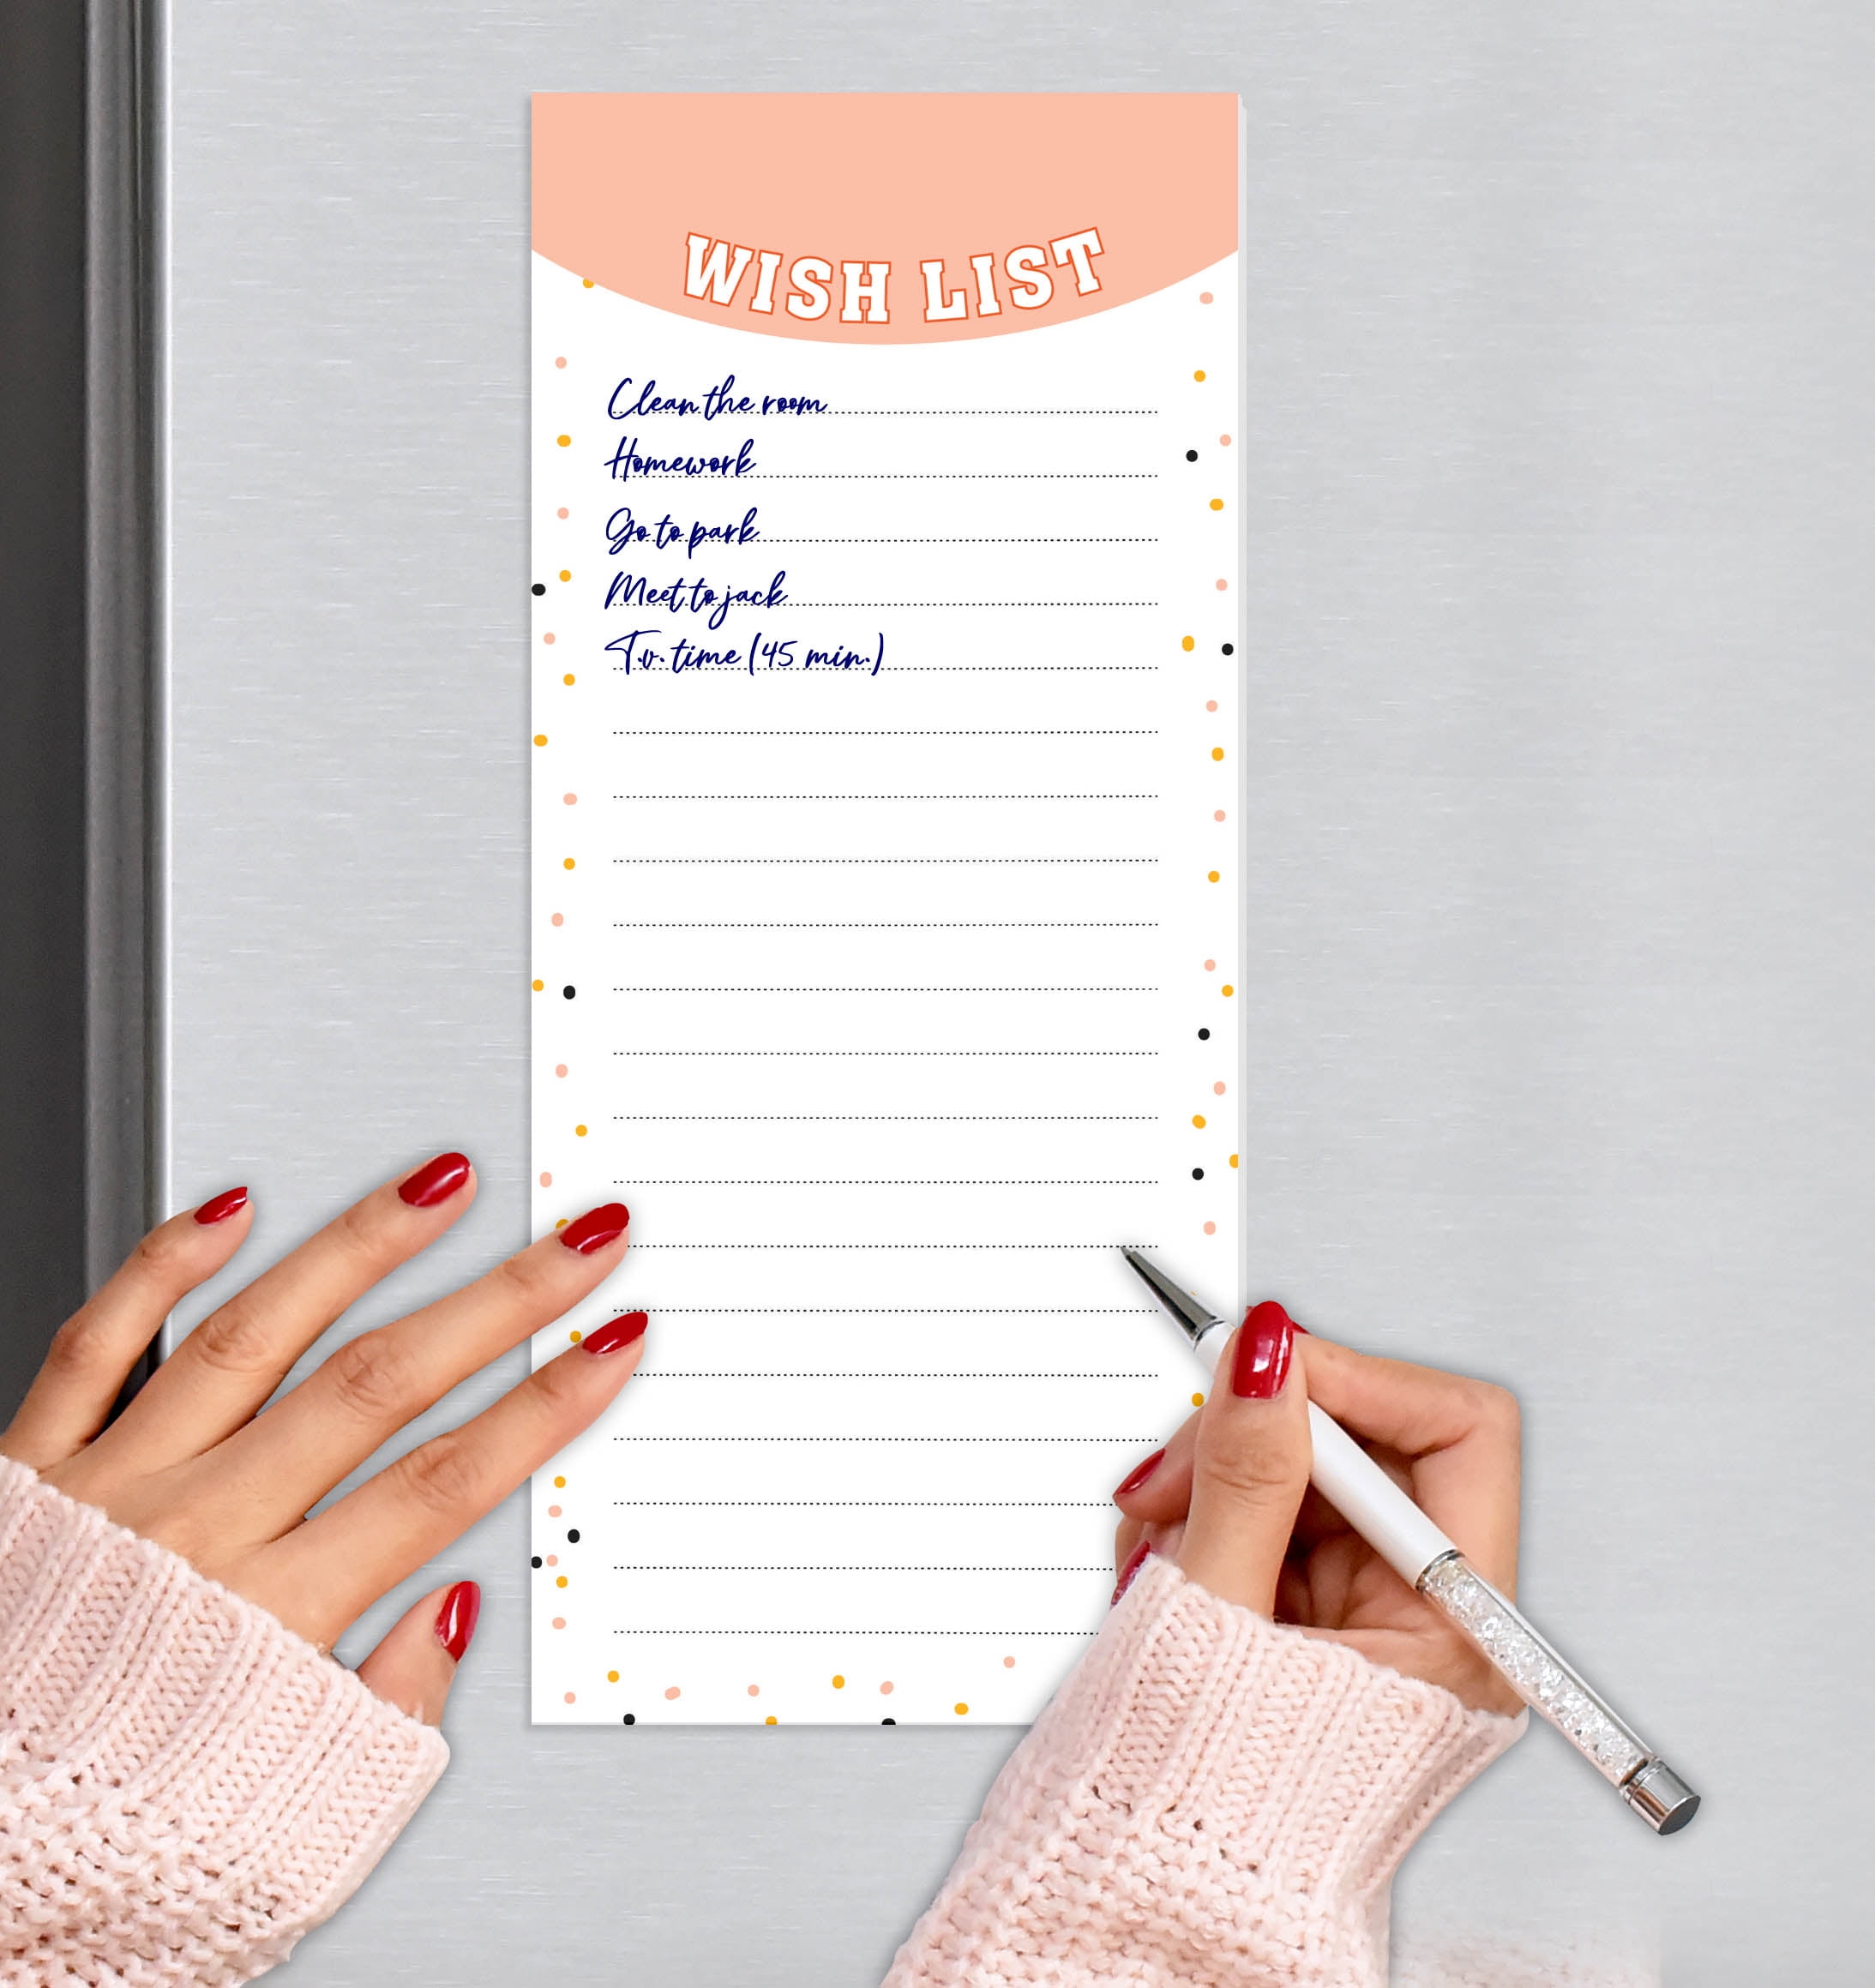 WISH LIST
Clean the room
Homework
Go to park
Meet to jack
T.v. time (45 min.)